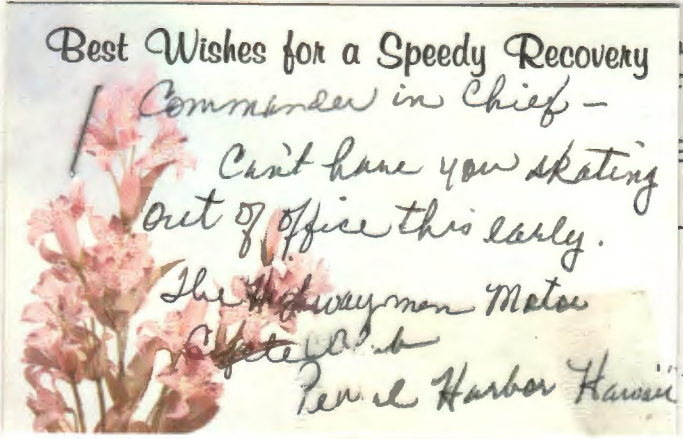 Best Wishes for a Speedy Recovery
Commander in Chief -
Can't have you skating
out of office this early.
The Highwaymen Motor
Cycle Club
Pearl Harbor Hawaii